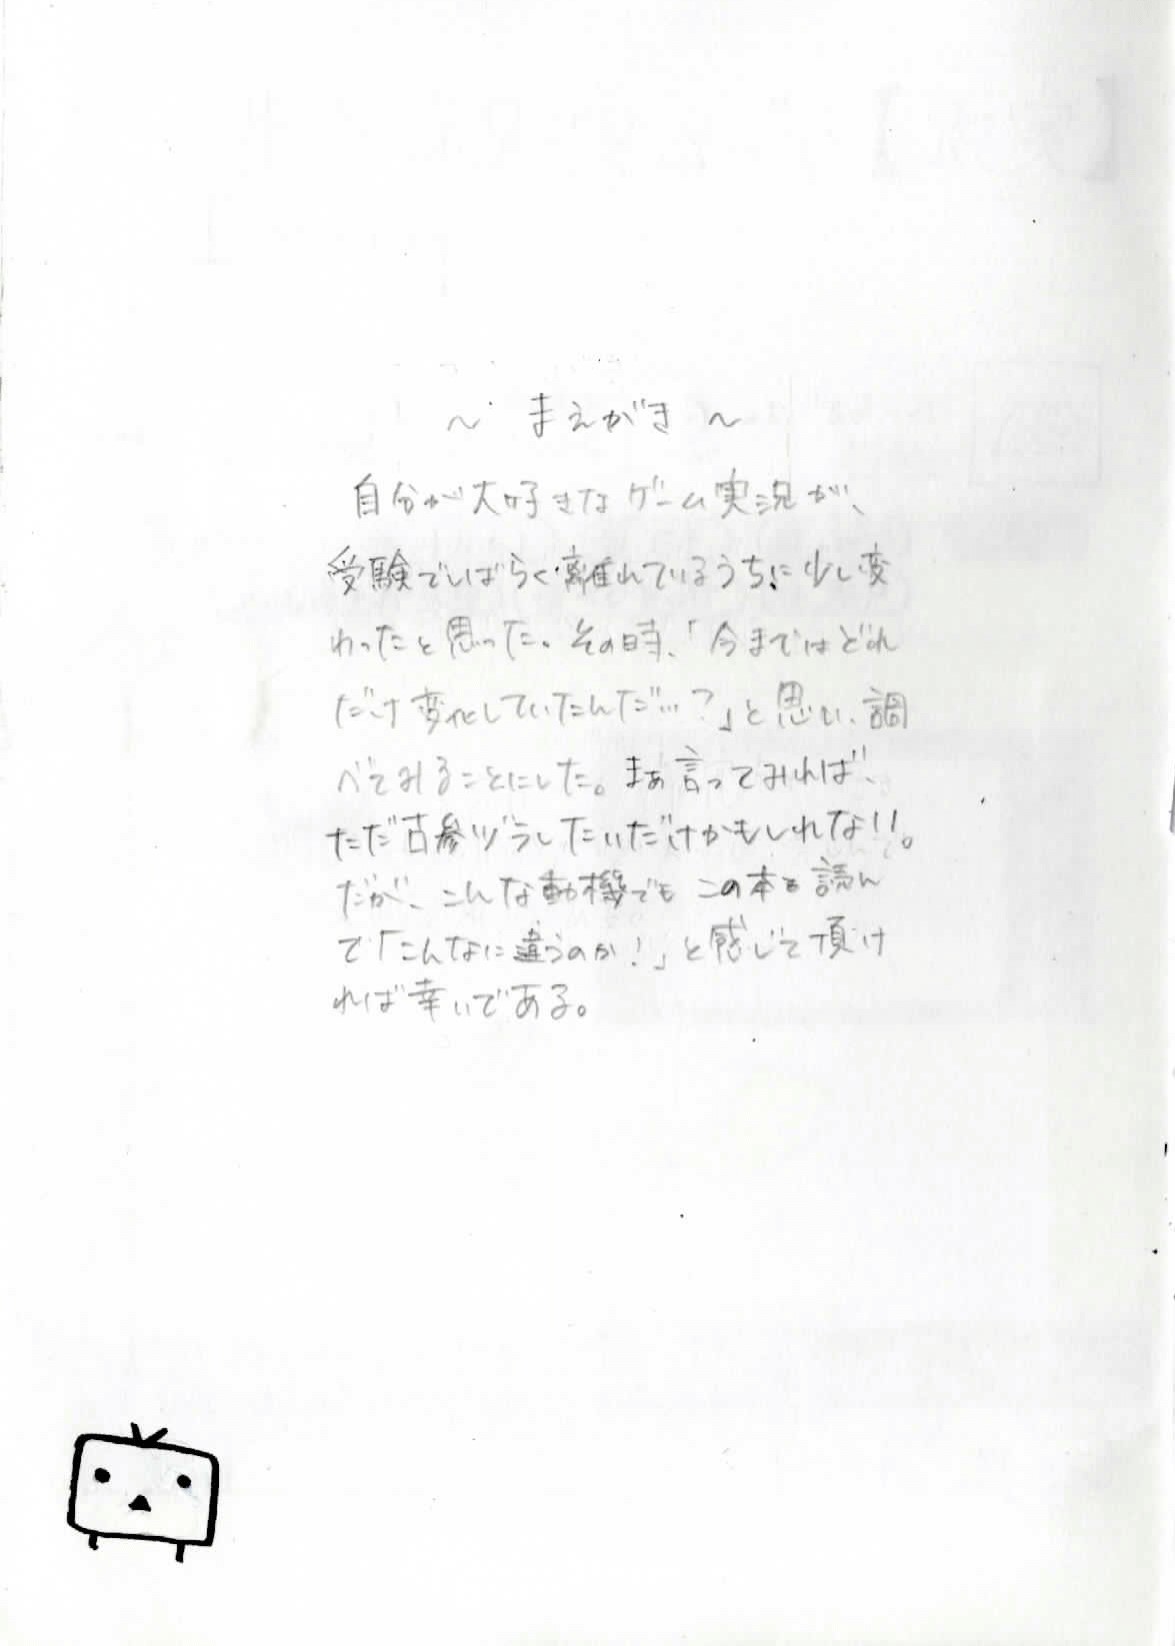 ～ まえがき ～
自分が大好きなゲーム実況が、
受験でしばらく離れているうちに少し変
わったと思った。その時、「今まではどれ
だけ変化していたんだ…?」と思い、調
べてみることにした。まあ言ってみれば、
ただ古参ヅラしたいだけかもしれない。
だが、こんな動機でもこの本を読ん
で「こんなに違うのか!」と感じて頂け
れば幸いである。